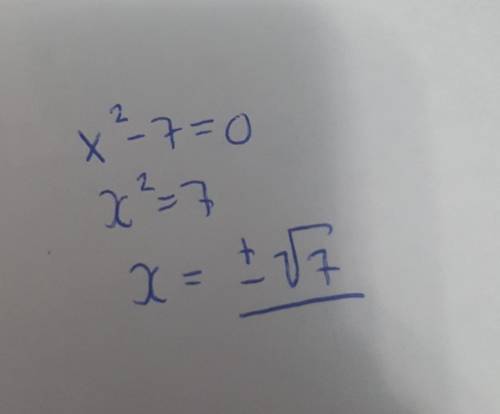 x² - 7 = 0
x² = 7
x = ± √7